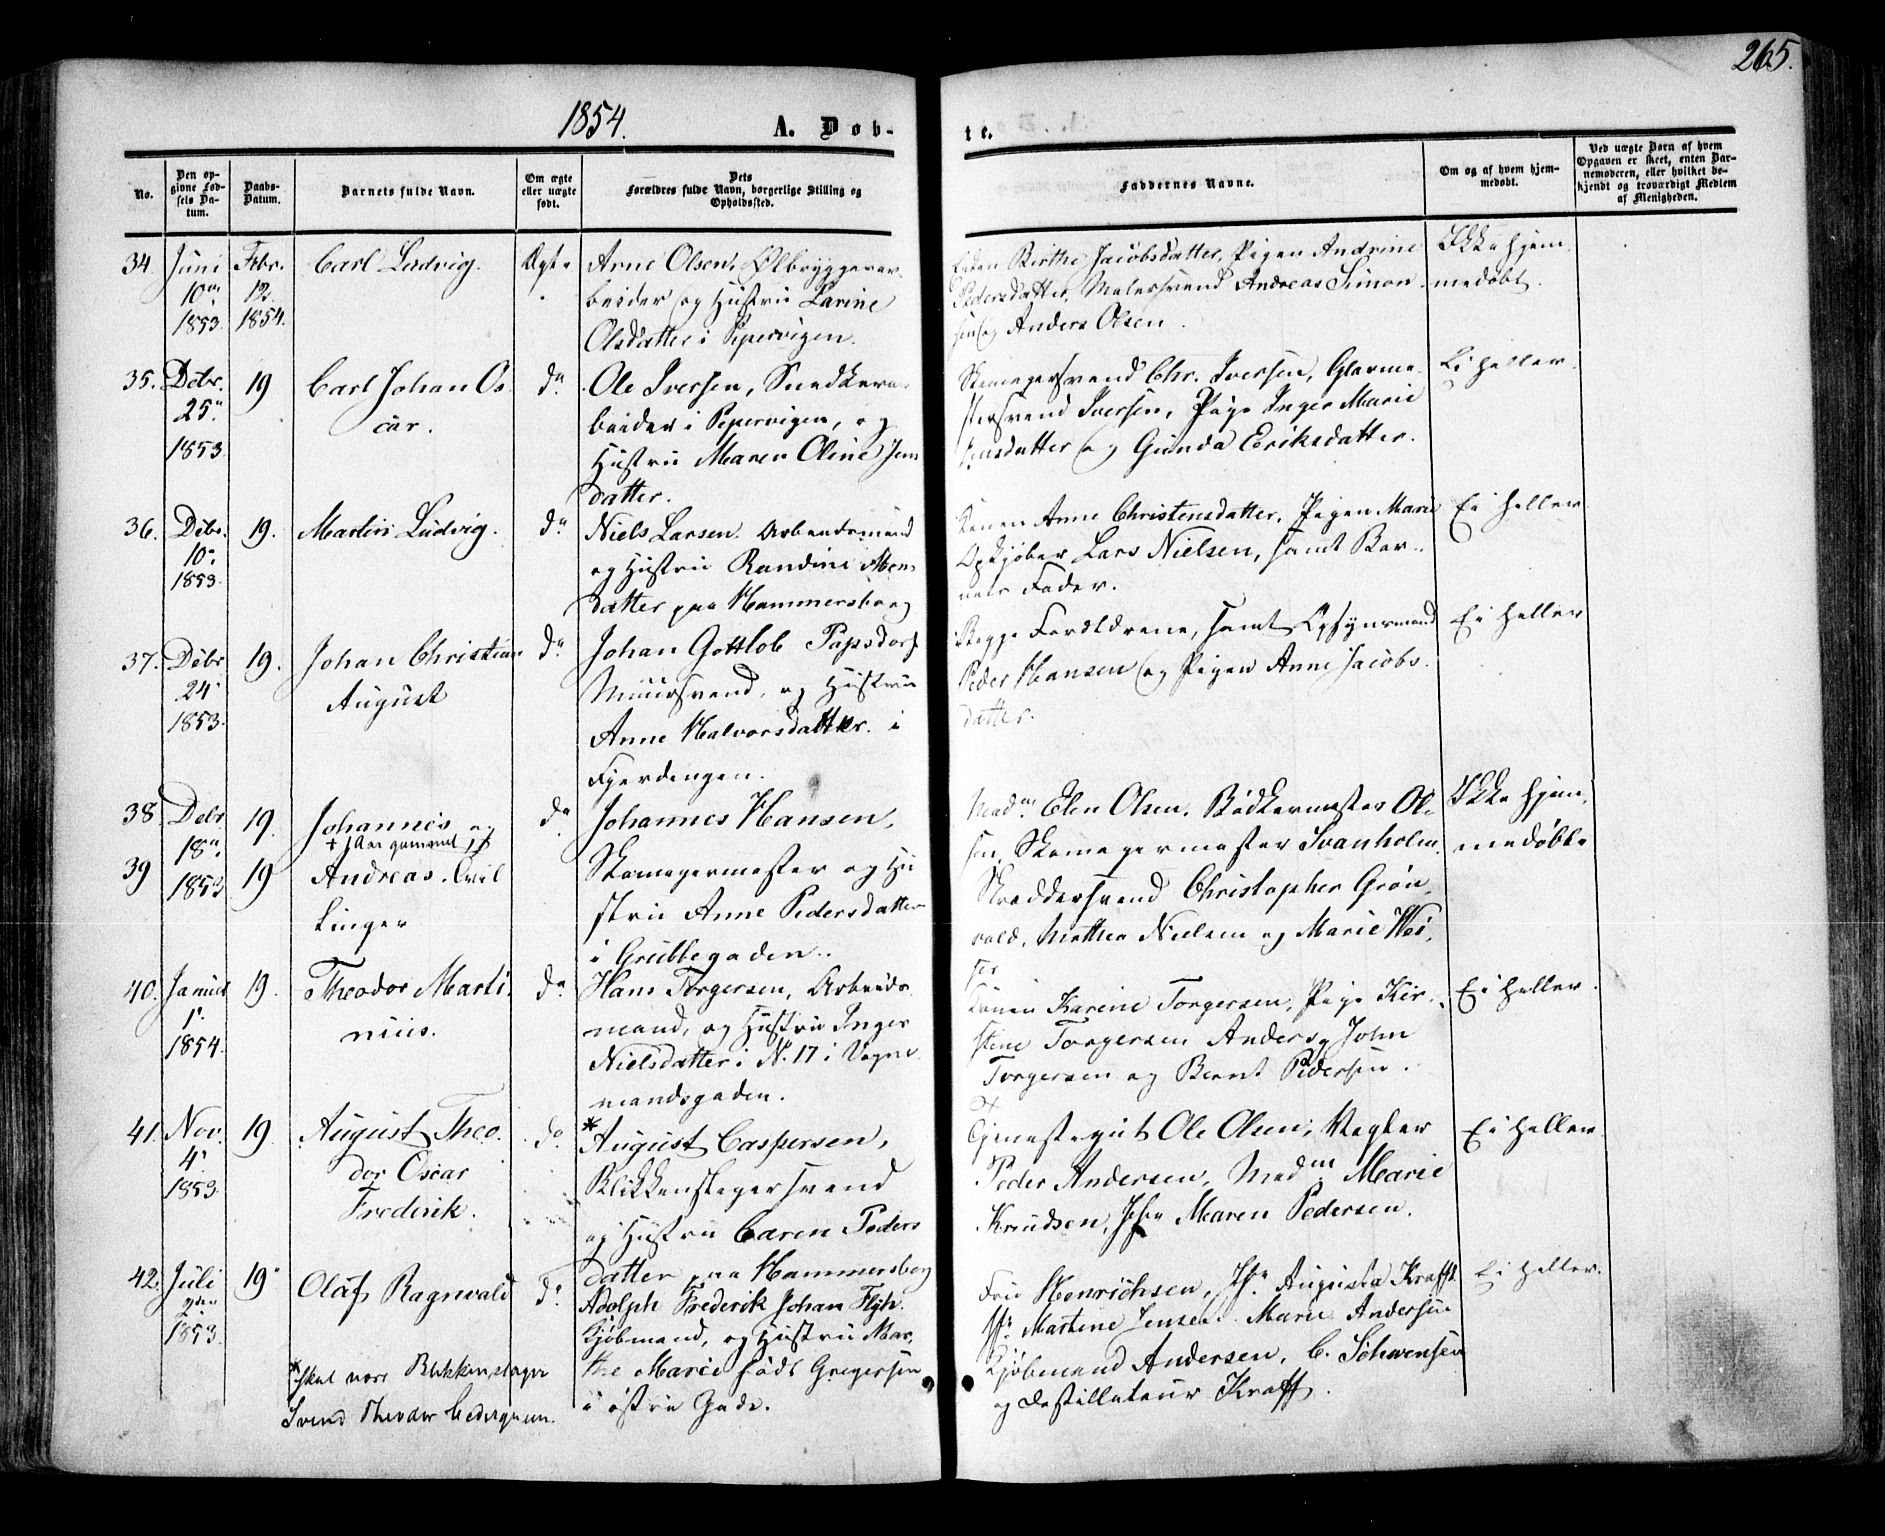 265.
1854. A. Døb-
te.
No.
Den op-
givne Fød-
sels Da-
tum.
Daabs-
Datum.
Barnets fulde Navn.
Om ægte
eller uægte
født.
Dets
Forældres fulde Navn, borgerlige Stilling og
Opholdssted.
Faddernes Navne.
Om og af hvem hjem-
medøbt.
Ved uægte Børn af hvem
Opgaven er skeet, enten Bar-
nemoderen, eller hvilket be-
kjendt og troværdigt Medlem
af Menigheden.
34.
Juni
10de
1853.
Febr.
12.
1854.
Carl Ludvig.
Ægte
Arne Olsen, Ølbryggerar-
beider og Hustru Larine
Olsdatter i Pepervigen.
Enken Birthe Jacobsdatter, Pigen Andrine
Pedersdatter, Malersvend Andreas Simon-
sen og Anders Olsen.
Ikke hjem-
medøbt.
35.
Debr.
25.
1853
19
Carl Johan Os-
car.
do
Ole Iversen, Snedkerar-
beider i Pepervigen, og
Hustru Maren Oline Jens
datter.
Skomagersvend Chr. Iversen, Glarme-
stersvend Iversen, Pige Inger Marie
Jensdatter og Gunda Eriksdatter.
Ei heller.
36.
Debr.
10.
1853.
19.
Martin Ludvig.
do
Niels Larsen. Arbeidsmand
og Hustru Randine Mons
datter paa Hammersborg
Konen Anne Christensdatter, Pigen Marie
Opkjøber Lars Nielsen, samt Bar-
nets Fader.
Ei heller
37.
Debr
24
1853.
19.
Johan Christian
August
do
Johan Gottlob Papsdorf
Muursvend, og Hustru
Anne Halvorsdatter. i
Fjerdingen.
Begge Forældrene, samt Opsynsmand
Peder Hansen og Pigen Anne Jacobs-
datter.
Ei heller
38
Debr
18de
1853
19.
Johannes og
+ 1 Aar gammel
39
19
Andreas. Tvil
linger
do
Johannes Hansen,
Skomagermester og Hu
stru Anne Pedersdatter
i Grubbegaden.
Madm. Elen Olsen. Bødkermester Ol-
sen, Skomagermester Svanholm.
Skræddersvend Christopher Grøn-
vold, Mathea Nielsen og Marie
Ikke hjem-
medøbte
40.
Januar
1.
1854.
19.
Theodor Marti-
nius.
do
Hans Torgersen, Arbeids-
mand, og Hustru Inger
Nielsdatter i N. 17 i Vogn-
mandsgaden.
Konen Karine Torgersen, Pige Kir-
stine Torgersen Anders, John
Torgersen og Bernt Pedersen.
Ei heller.
41.
Nov.
4.
1853.
19.
August Theo-
dor Oscar
Frederik.
do
*
August Caspersen,
Blikkenslagersvend
og Hustru Caren Peders
datter paa Hammersborg
Tjenestegut Ole Olsen, Vægter
Peder Andersen, Madm. Marie
Knudsen, Jfr. Maren Pedersen.
Ei heller
42.
Juli
2den
1853.
19.
Olaf Ragnvald
do
Adolph Frederik Johan
Kjøbmand, og Hustru Mar-
the Marie født Gregersen
i østre Gade.
Fru Henrichsen, Jfr. Augusta Krafft
Jfr. Martine Jensen. Marie Andersen
Kjøbmand Andersen, C. Schwensen
og Destillateur Krafft.
Ei heller.
* skal være Blikkenslager
Svend Theodor Cedergreen.